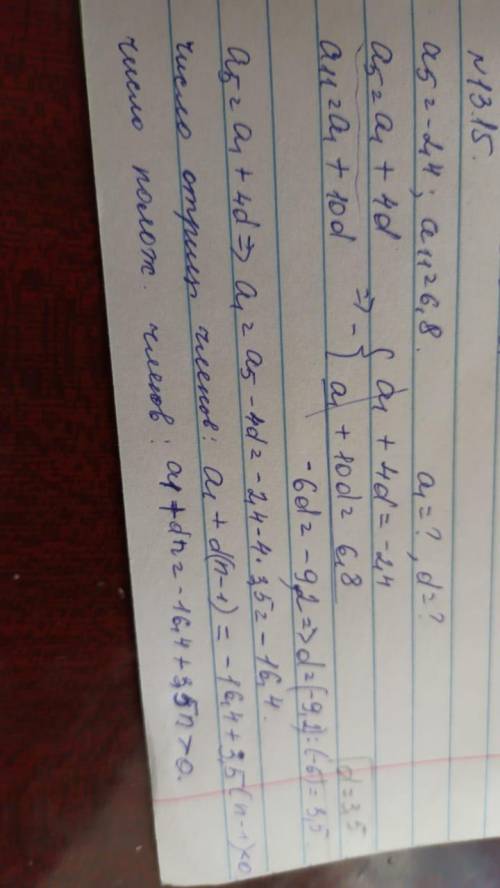 №13.15.
a₅ = -2,4; a₁₁ = 6,8. a₁ = ?, d = ?
a₅ = a₁ + 4d
a₁₁ = a₁ + 10d ⇒ - { a₁ + 4d = -2,4
a₁ + 10d = 6,8
d = 3,5
-6d = -9,2 ⇒ d = (-9,2) : (-6) = 3,5.
a₅ = a₁ + 4d ⇒ a₁ = a₅ - 4d = -2,4 - 4 · 3,5 = -16,4.
число отриц членов: a₁ + d(n-1) = -16,4 + 3,5(n-1) < 0
число полож. членов: a₁ + dn = -16,4 + 3,5n > 0.